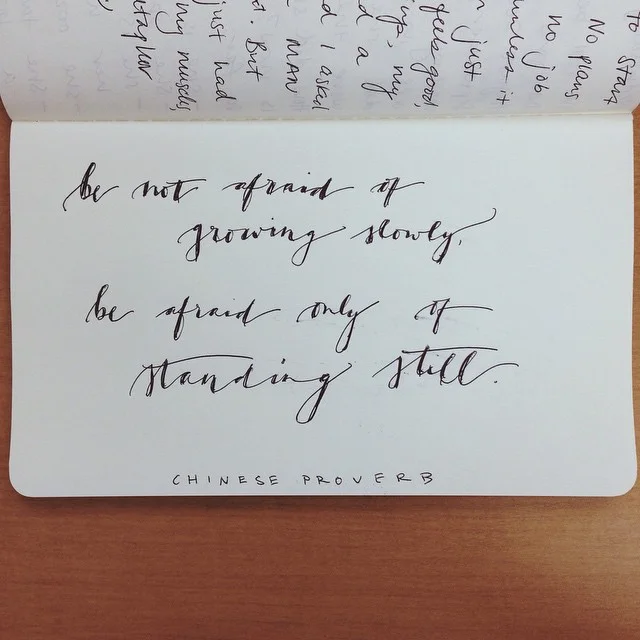 to start
No plans
no job
unless it
just
feels good,
my
d a
d I asked
MAN
. But
just had
my muscles,
be not afraid of
growing slowly,
be afraid only of
standing still.
CHINESE PROVERB